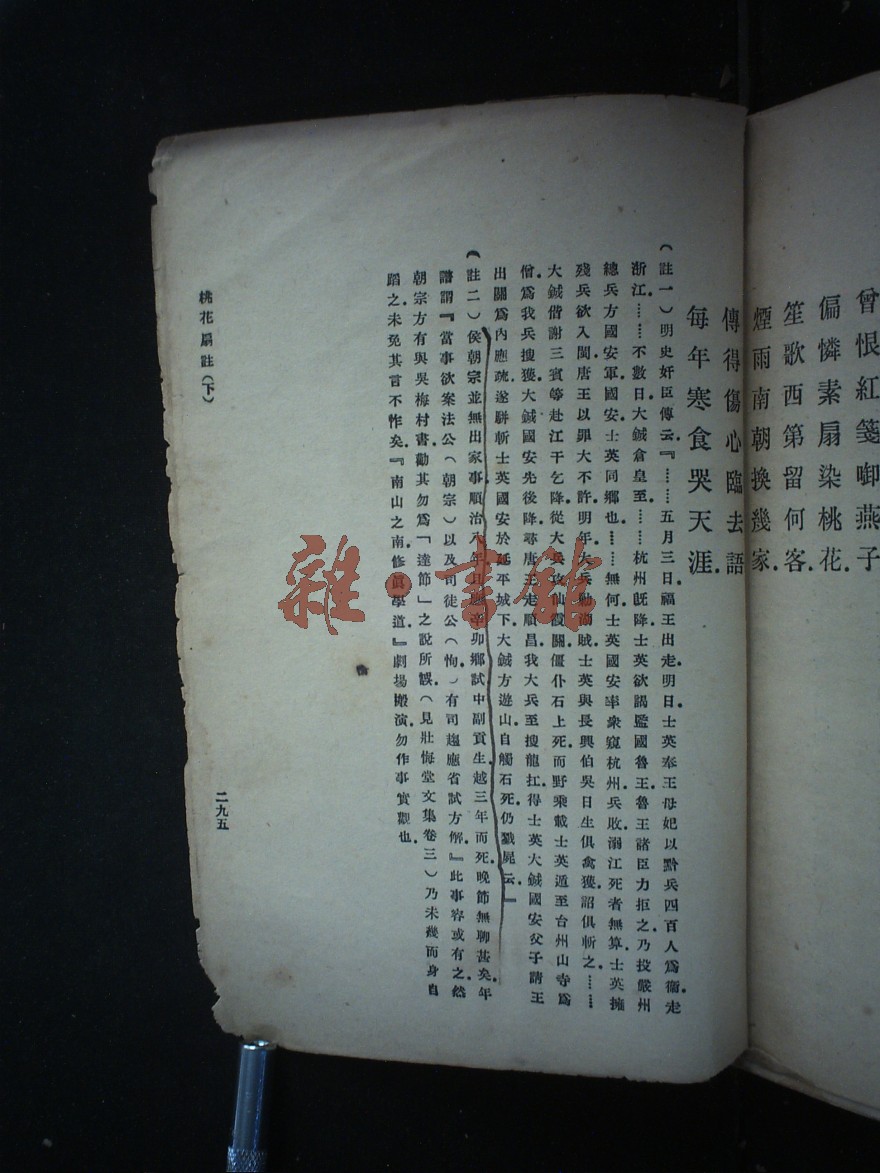 曾恨紅箋啣燕子
偏憐素扇染桃花.
笙歌西第留何客.
煙雨南朝換幾家.
傳得傷心臨去語
每年寒食哭天涯.
（註一）明史奸臣傳云.『……五月三日.福王出走.明日.士英奉王母妃以黔兵四百人爲衞走
浙江……不數日.大鋮倉皇至.……杭州旣降.士英欲謁監國魯王.魯王諸臣力拒之.乃投嚴州
總兵方國安軍.國安.士英同鄉也.……無何.士英國安率衆窺杭州.兵敗.溺江死者無算.士英擁
殘兵欲入閩.唐王以罪大不許.明年.大兵勦湖賊.士英與長興伯吳日生俱禽獲.詔俱斬之.……
大鋮偕謝三賓等赴江干乞降.從大兵攻仙霞關.僵仆石上死.而野乘載士英遁至台州山寺爲
僧.爲我兵搜獲.大鋮國安先後降.尋唐王走順昌.我大兵至.搜龍扛.得士英大鋮國安父子請王
出關爲內應疏.遂駢斬士英國安於延平城下.大鋮方遊山.自觸石死.仍戮屍云.』
（註二）侯朝宗並無出家事.順治八年.且應辛卯鄉試.中副貢生.越三年而死.晚節無聊甚矣.年
譜謂『當事欲案法公（朝宗）以及司徒公（恂）有司趨應省試方解.』此事容或有之.然
朝宗方有與吳梅村書.勸其勿爲「達節」之說所誤（見壯悔堂文集卷三）乃未幾而身自
蹈之.未免其言不怍矣.『南山之南修眞學道.』劇場搬演.勿作事實觀也.
桃花扇註（下）
二九五
雜·書館